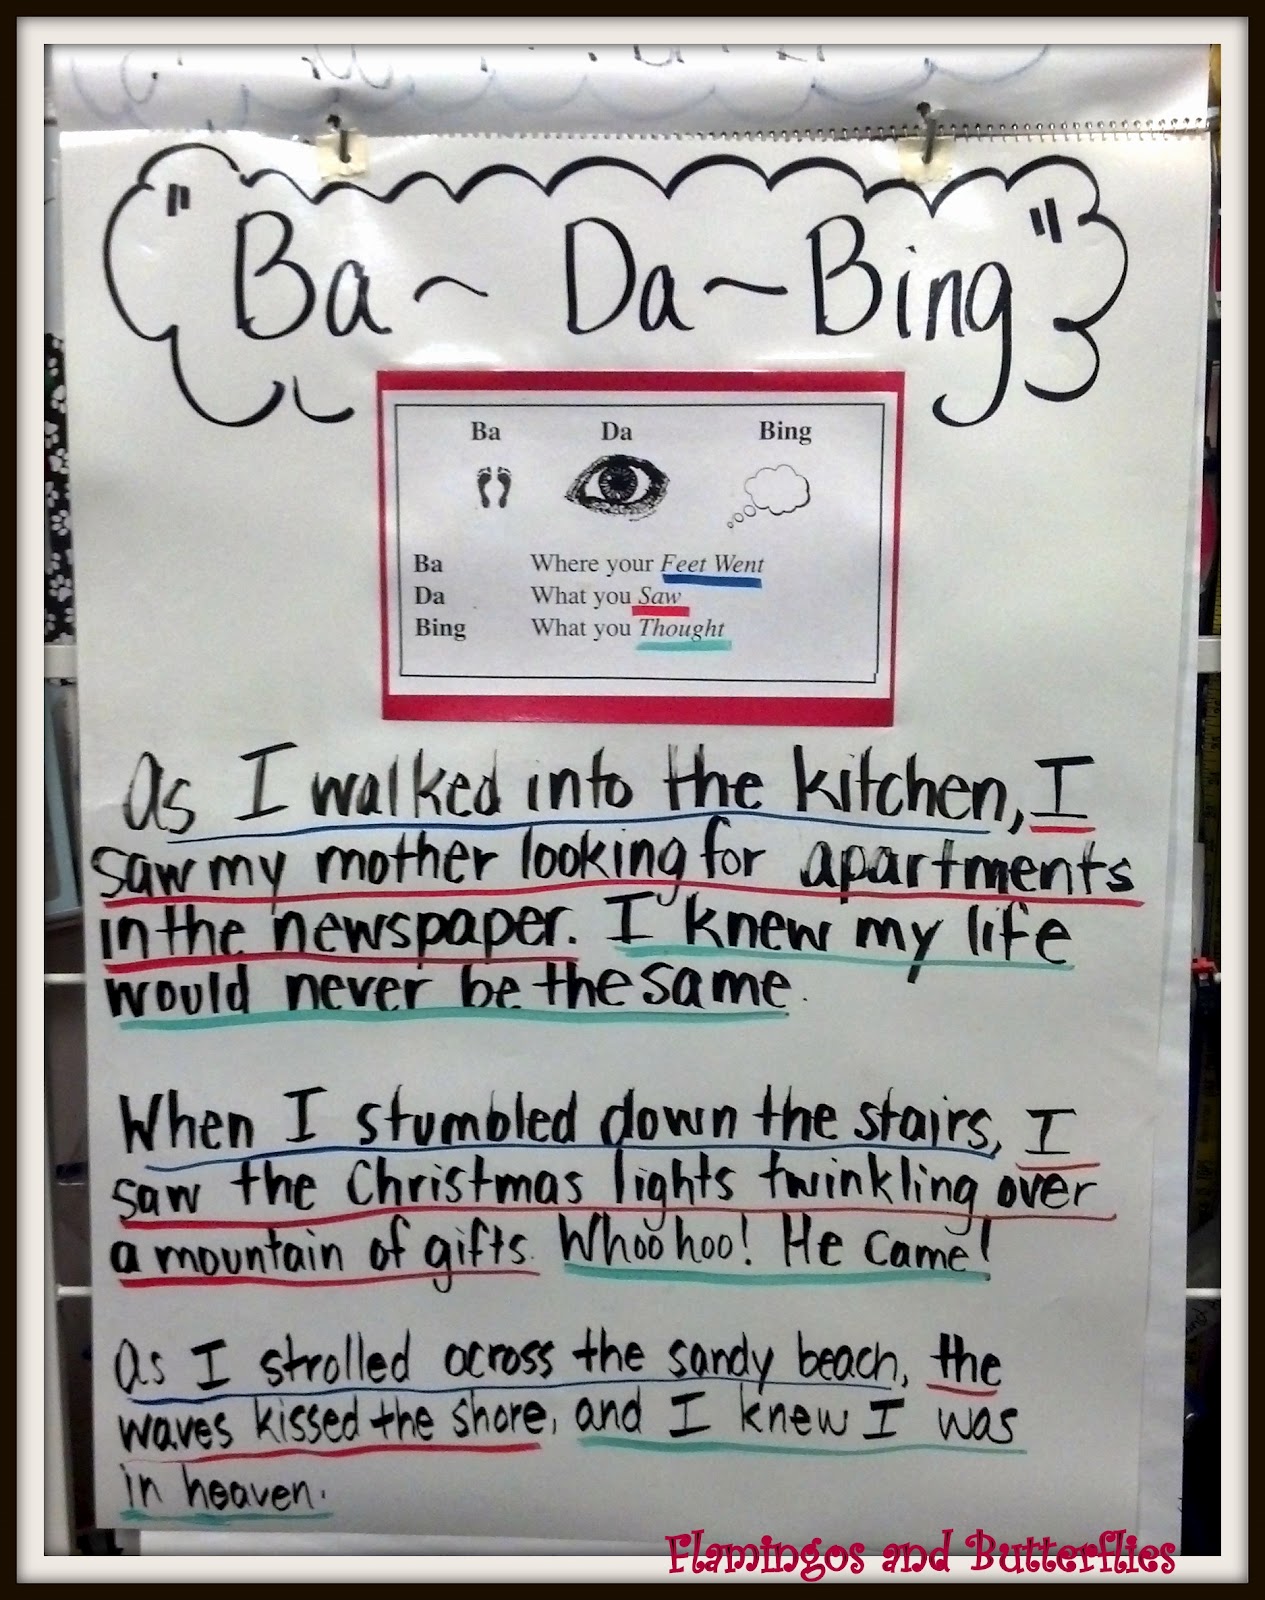 "Ba~ Da~Bing"
Ba Da Bing
Ba Where your Feet Went
Da What you Saw
Bing What you Thought
As I walked into the kitchen, I
saw my mother looking for apartments
in the newspaper. I knew my life
would never be the same.
When I stumbled down the stairs, I
saw the Christmas lights twinkling over
a mountain of gifts. Whoohoo! He came!
As I strolled across the sandy beach, the
waves kissed the shore, and I knew I was
in heaven.
Flamingos and Butterflies